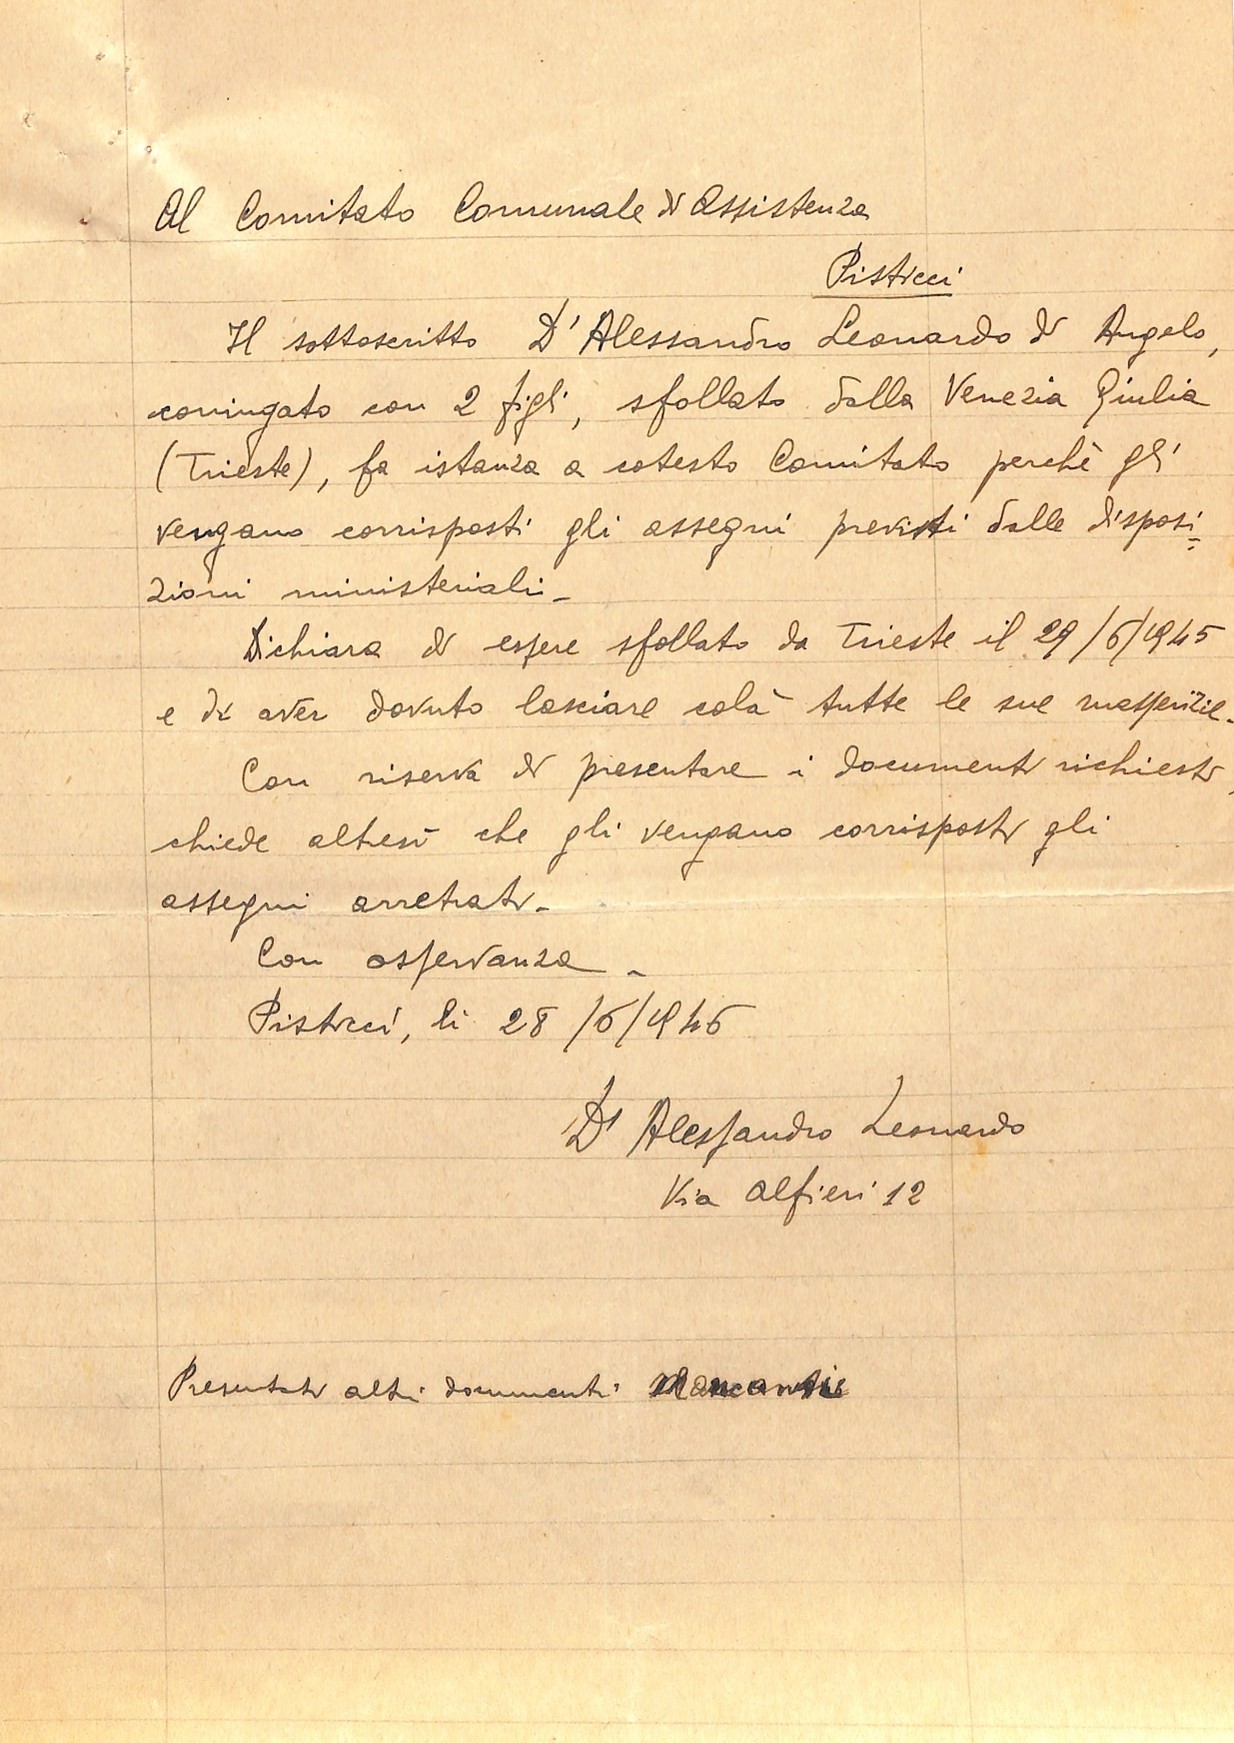 Al Comitato Comunale di Assistenza
Pisticci
Il sottoscritto D'Alessandro Leonardo di Angelo,
coniugato con 2 figli, sfollato dalla Venezia Giulia
(Trieste), fa istanza a cotesto Comitato perchè gli
vengano corrisposti gli assegni previsti dalle disposi=
zioni ministeriali_
Dichiara di essere sfollato da Trieste il 29/6/1945
e di aver dovuto lasciare colà tutte le sue masserizie_
Con riserva di presentare i documenti richiesti,
chiede altresì che gli vengano corrisposti gli
assegni arretrati_
Con osservanza_
Pisticci, li 28/6/1946
D'Alessandro Leonardo
Via Alfieri 12
Presentati altri documenti mancanti